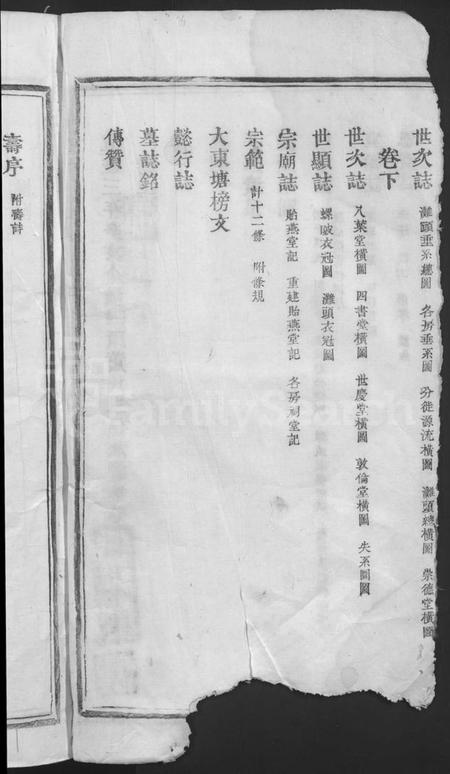 世次誌 灘頭垂系總圖 各房垂系圖 分徙源流橫圖 灘頭總橫圖 崇德堂橫圖
卷下
世次誌 八葉堂橫圖 四書堂橫圖 世慶堂橫圖 敦倫堂橫圖 失系圖圖
世顯誌 螺陂衣冠圖 灘頭衣冠圖
宗廟誌 貽燕堂記 重建貽燕堂記 各房祠堂記
宗範 計十二條 附條規
大東塘榜文
懿行誌
墓誌銘
傳贊
壽序 附壽詩
FamilySearch